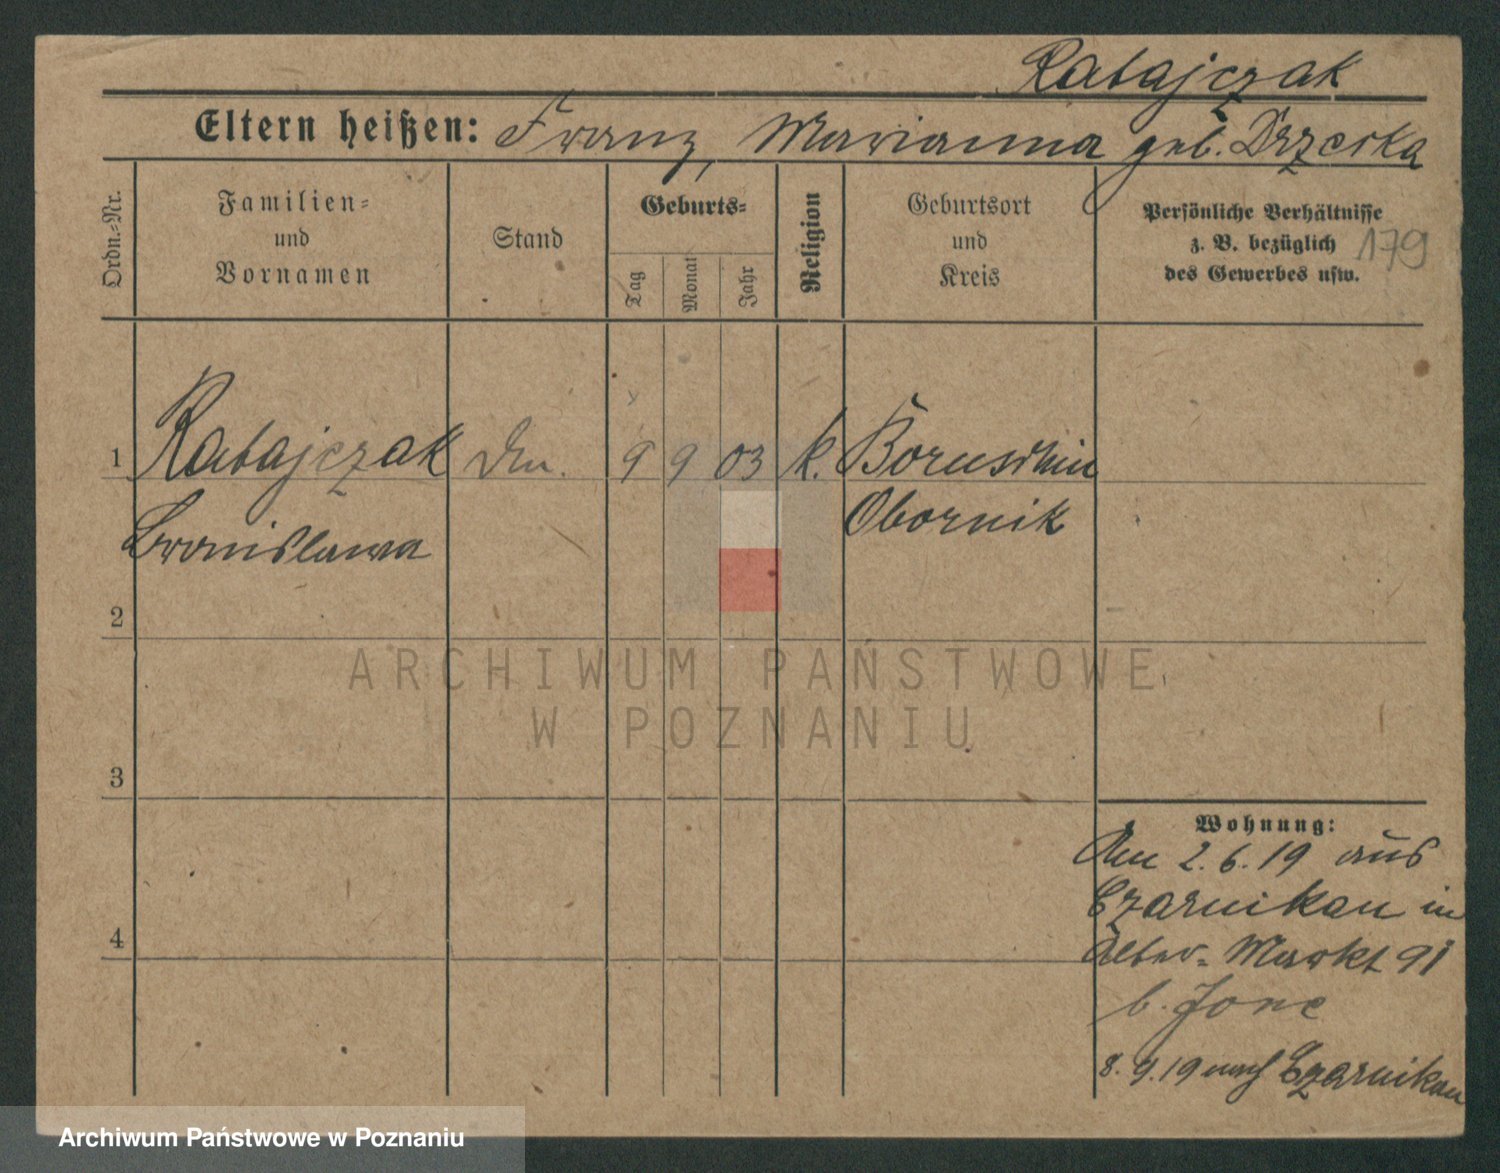 Ratajczak
Eltern heißen: Franz, Marianna geb.
Ordn.-Nr.
Familien-
und
Vornamen
Stand
Geburts-
Tag
Monat
Jahr
Religion
Geburtsort
und
Kreis
Persönliche Verhältnisse
z. B. bezüglich
des Gewerbes usw.
179
1 Ratajczak 9 9 03 k. Boruschin
Bronislawa Obornik
2
3
4
Wohnung:
2.6.19 aus
Czarnikau in
Alter-Markt 91
b.
8.9.19 nach Czarnikau
ARCHIWUM PAŃSTWOWE
W POZNANIU
Archiwum Państwowe w Poznaniu